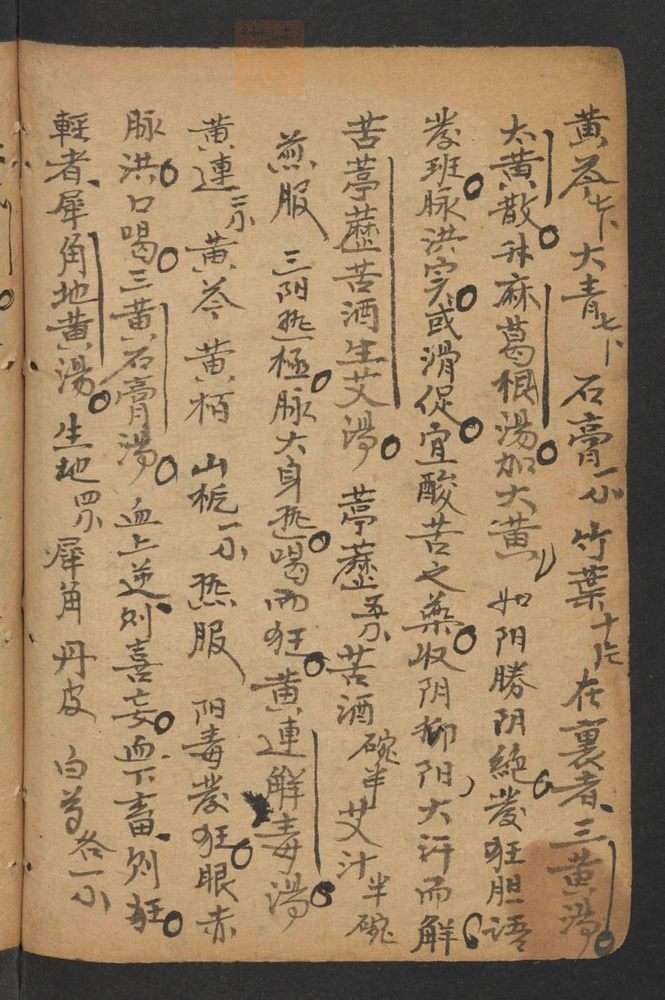 黄芩七卜大青七卜 石膏一小竹葉十片在裏者三黄湯
大黄散升麻葛根湯加大黄 如阳勝阴絶發狂胆语
發班脉洪实或滑促宜酸苦之藥收阴抑阳大汗而解
苦葶藶苦酒生艾湯 葶藶五小苦酒碗半艾汁半碗
煎服 三阳热極脉大身热喝而狂黄連解毒湯
黄連二小黄芩黄栢 山栀一小热服 阳毒發狂眼赤
脉洪口喝三黄石膏湯 血上逆则喜妄血下畜则狂
輕者犀角地黄湯 生地四小犀角丹皮 白芍各一小